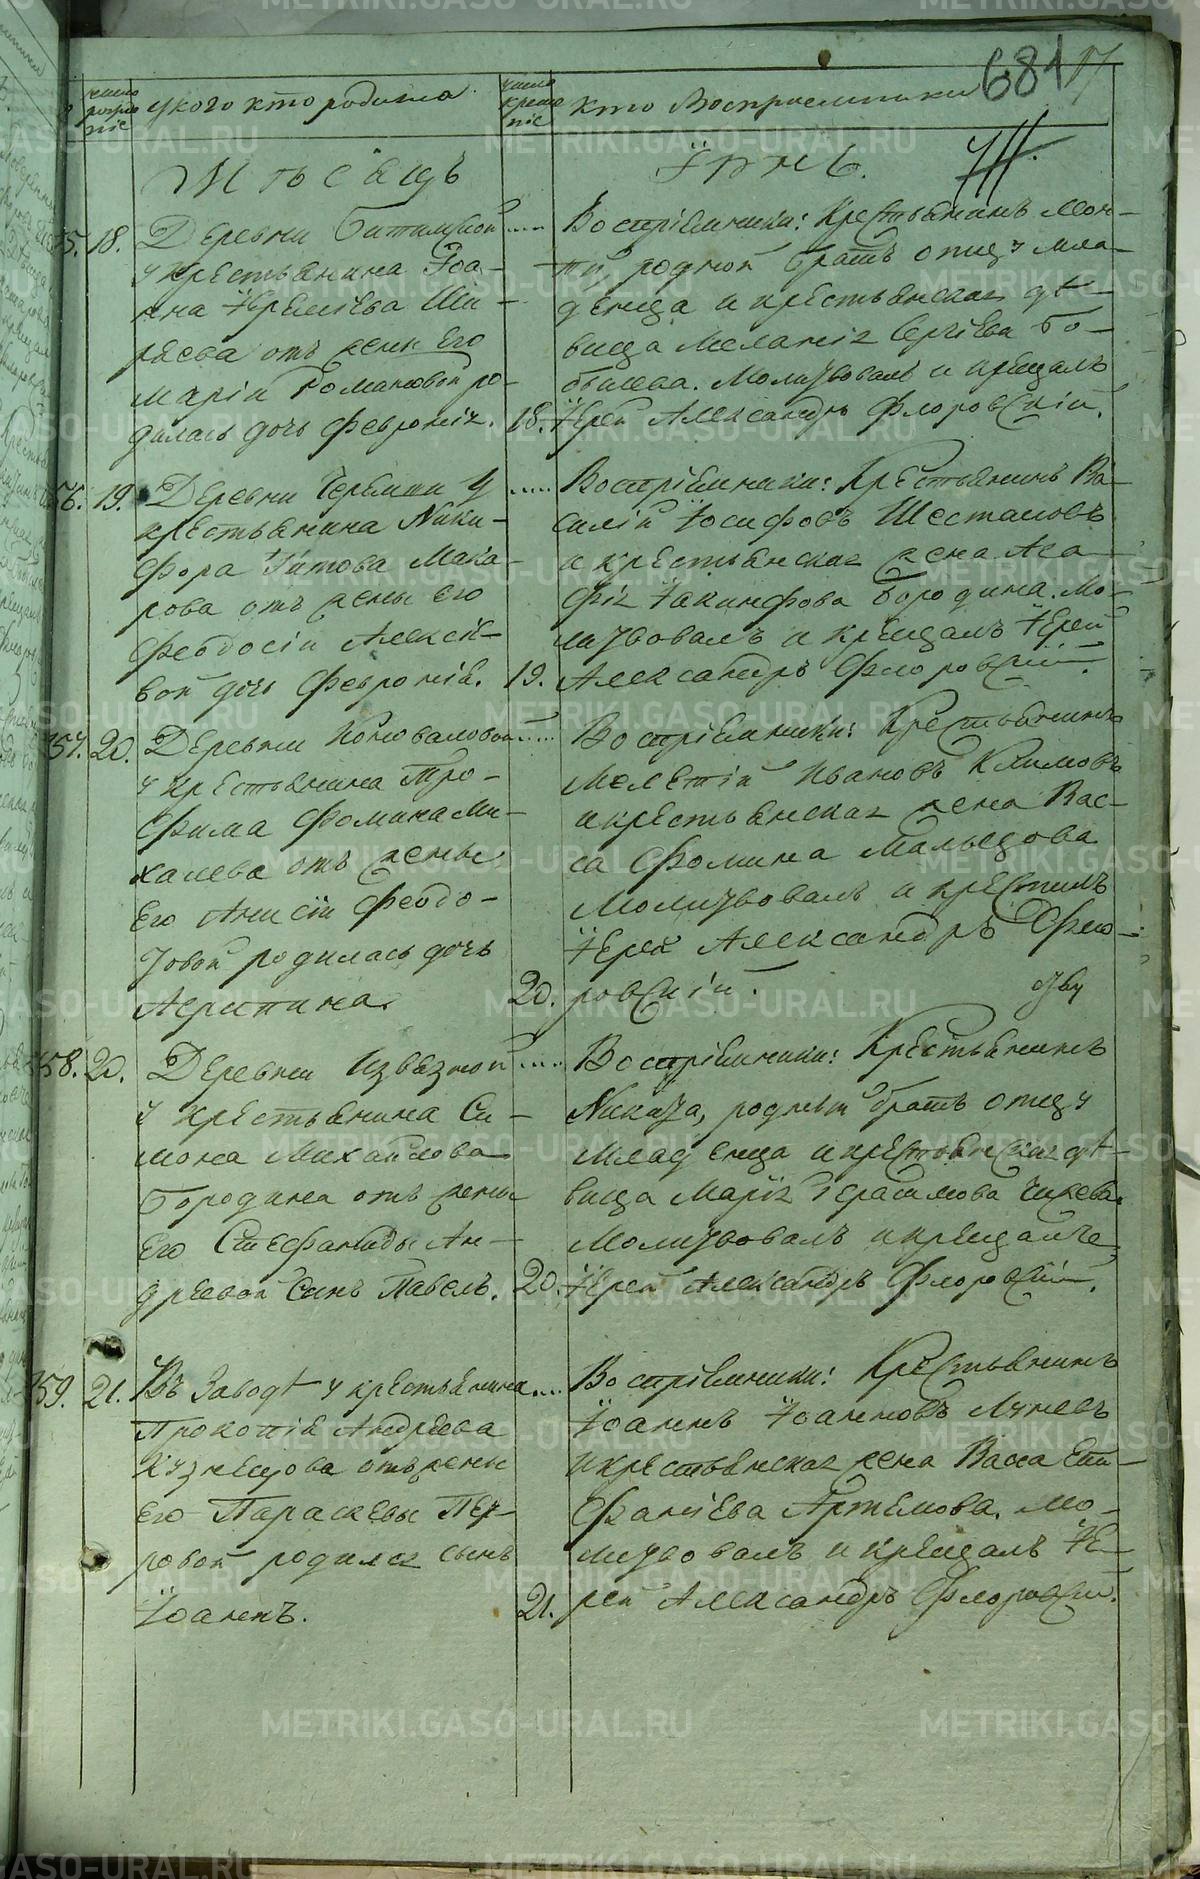 681 17
число рожденіе
у кого кто родился
число крещеніе
кто Воспріемники
Мѣсяцъ
Іюнь.
55. 18.
Деревни Битимской
у крестьянина Іоа-
нна Іеремѣева Ши-
ряева отъ жены Его
Маріи Романовой ро-
дилась дочь Феврониѧ. 18.
Воспріемники: Крестьянинъ
родной братъ отцу мла-
денца и крестьянскаѧ дѣ-
вица Меланіѧ Сергіева Бо-
бышева. Молитвовалъ и крещалъ
Іерей Александръ Флоровскій.
56. 19.
Деревни Черемши у
крестьянина Ники-
фора Титова Мака-
рова отъ жены Его
Феодосіи Алексѣе-
вой дочь Февронія. 19.
Воспріемники: Крестьянинъ Ва-
силій Іосифовъ Шестаковъ
и крестьянскаѧ жена Ага-
фіѧ Іакинфова Бородина. Мо-
литвовалъ и крещалъ Іерей
Александръ Флоровскій.
57. 20.
Деревни Коноваловой
у крестьянина Тро-
фима Фомина Ми-
халева отъ жены
Его Анисіи Феодо-
товой родилась дочь
Агрипина. 20.
Воспріемники: Крестьянинъ
Мелетій Ивановъ Климовъ
и крестьянскаѧ жена Вас-
са Фомина Мальцова
Молитвовалъ и крестилъ
Іерей Александръ Фло-
ровскій.
58. 20.
Деревни Извезной
у крестьянина Си-
мона Михайлова
Бородина отъ жены
Его Стефаниды Ан-
дреевой сынъ Павелъ. 20.
Воспріемники: Крестьянинъ
Никита, родный братъ отцу
Младенца и крестьянскаѧ дѣ-
вица Маріѧ Герасимова
Молитвовалъ и крещалъ
Іерей Александръ Флоровскій.
59. 21.
Въ Заводѣ у крестьянина
Прокопія Андреева
Кузнецова отъ жены
Его Параскевы Пет-
ровой родился сынъ
Іоаннъ. 21.
Воспріемники: Крестьянинъ
Іоаннъ Іоанновъ Луневъ
и крестьянскаѧ жена Васса Епи-
фаніева Артемова. Мо-
литвовалъ и крещалъ Іе-
рей Александръ Флоровскій.
METRIKI.GASO-URAL.RU